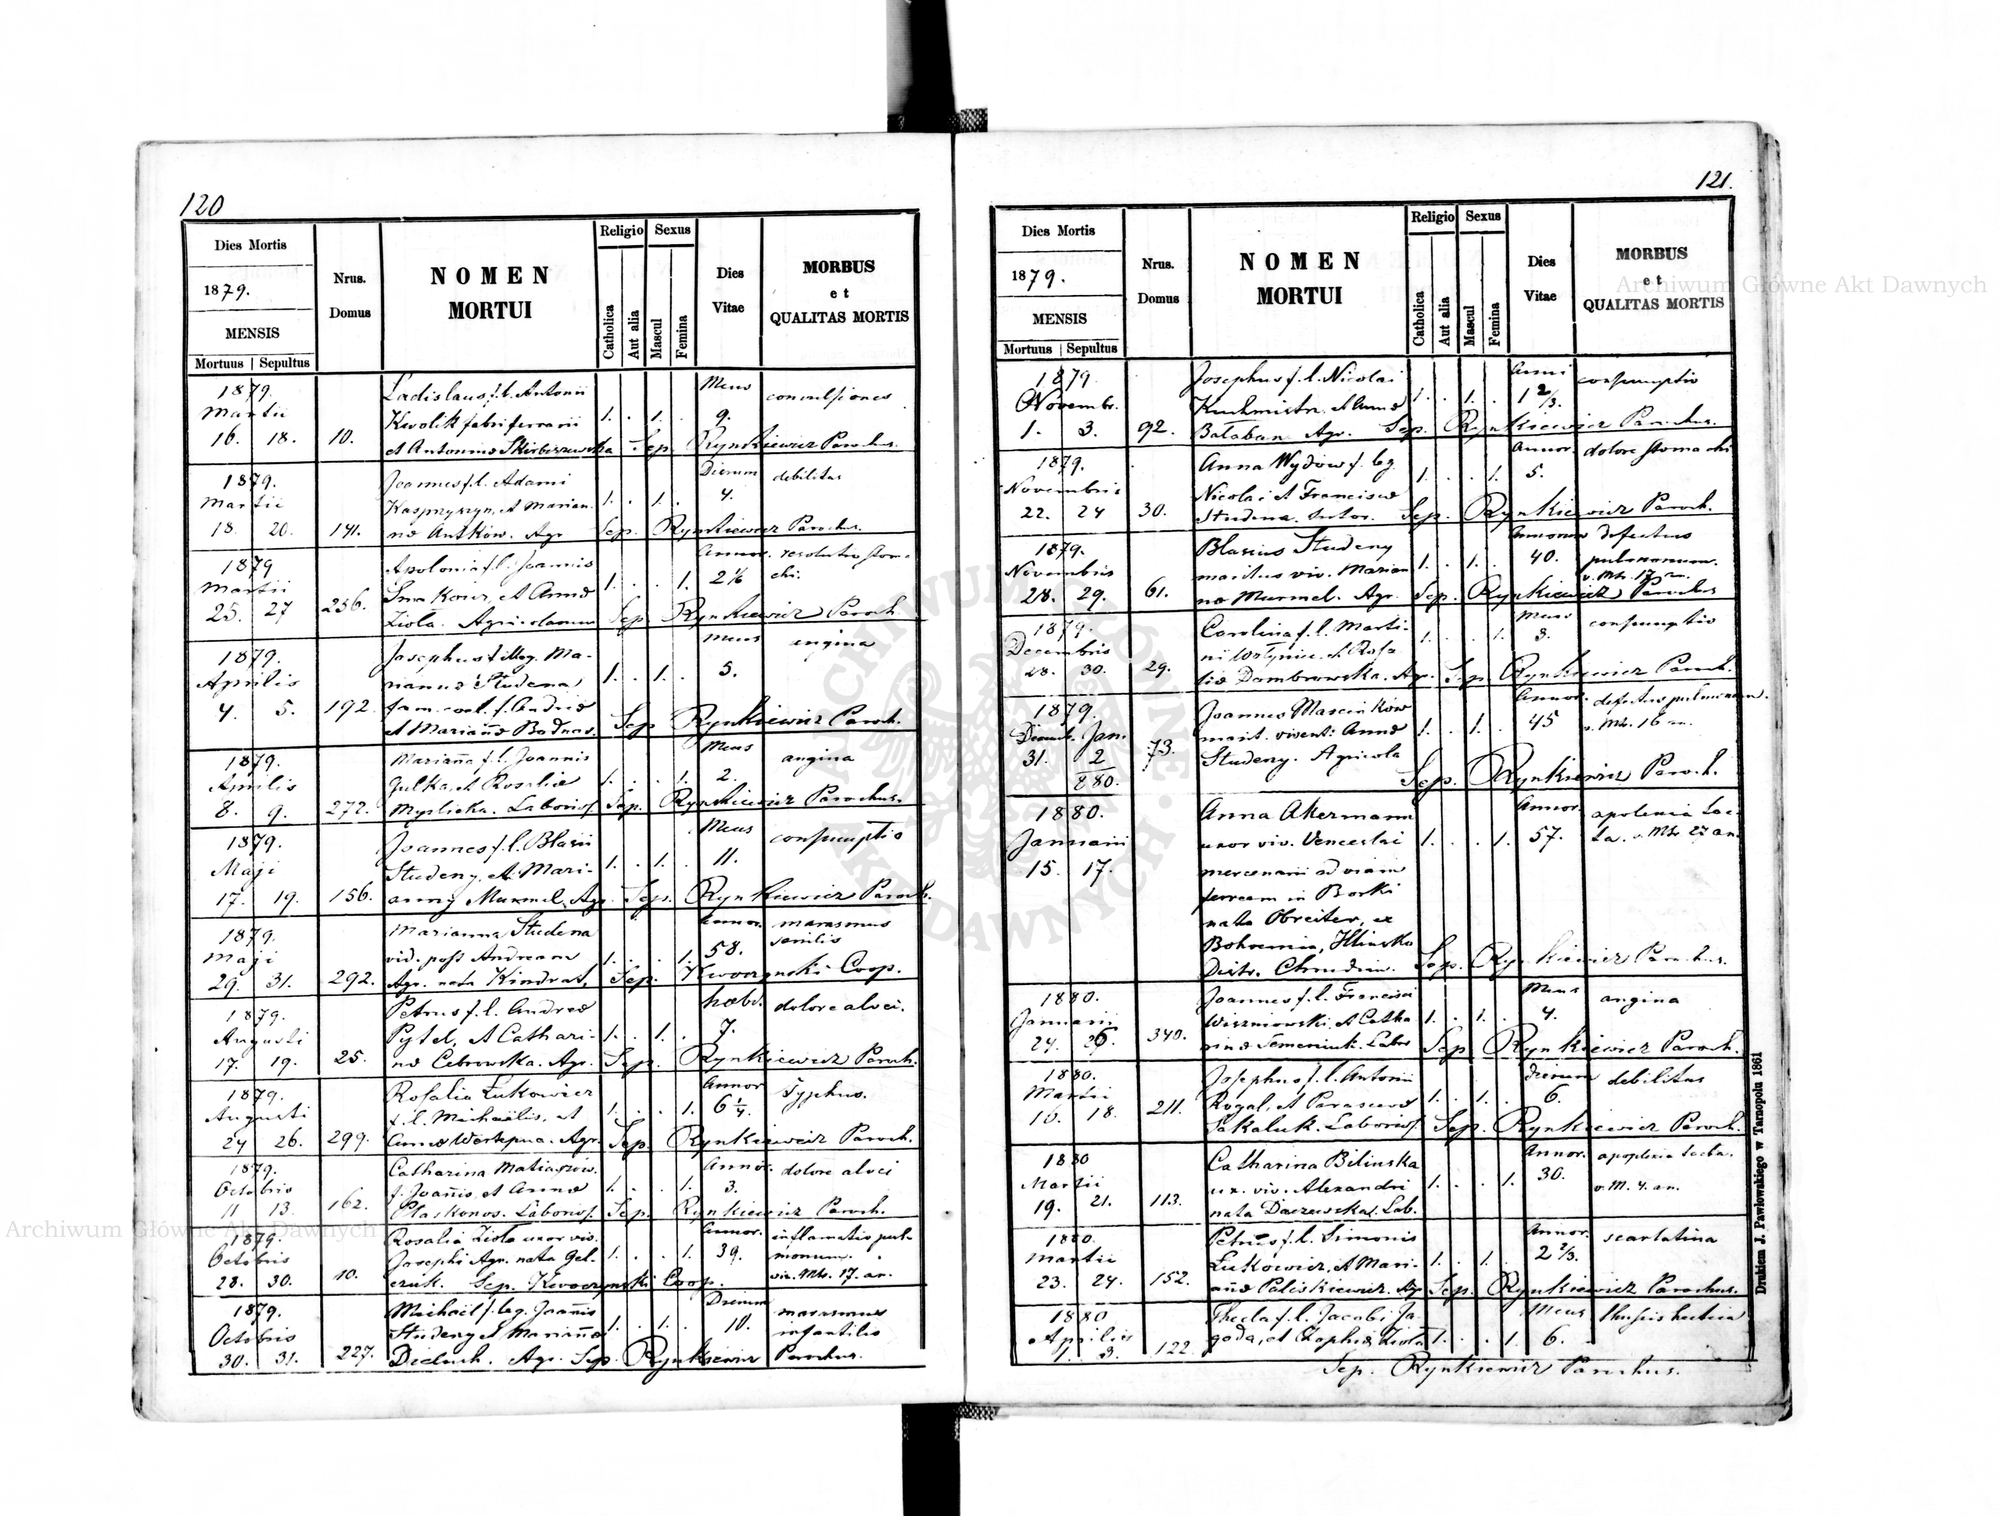 120
Dies Mortis
1879.
MENSIS
Mortuus Sepultus
Nrus. Domus
NOMEN MORTUI
Religio
Catholica
Aut alia
Sexus
Mascul
Femina
Dies Vitae
MORBUS et QUALITAS MORTIS
1879. Martii 16. 18. 10.
Ladislaus f. l. Antonii
Kwolik fabri ferrarii
et Antoninæ
1. . 1. .
Mens. 9.
convulsiones
Sep. Rynkiewicz Parochus.
1879. Martii 18 20. 141.
Joannes f. l. Adami
Kasprzyszyn, et Marian-
næ Antków. Agr.
1. . 1. .
Dierum 4.
debilitas
Sep. Rynkiewicz Parochus.
1879 Martii 25. 27 236.
Apolonia f. l. Joannis
et Annæ
Zioła. Agricolarum
1. . . 1.
Annor. 2 1/6
Sep. Rynkiewicz Paroch.
1879. Aprilis 4. 5. 192.
Josephus f. illeg. Ma-
rianæ Studena
fam. coel. f. Andreæ
et Mariañæ Bodnar.
1. . 1. .
Mens 5.
angina
Sep. Rynkiewicz Paroch.
1879. Aprilis 8. 9. 272.
Mariaña f. l. Joannis
Gulka, et Rosaliæ
Myslicka. Laborios.
1. . . 1.
Mens 2.
angina
Sep. Rynkiewicz Parochus.
1879. Maji 17. 19. 156.
Joannes f. l. Blasii
Studeny, et Mari-
anny Murmel. Agr.
1. . 1. .
Mens 11.
consumptio
Sep. Rynkiewicz Paroch.
1879. Maji 29. 31. 292.
Marianna Studena
vid. post Andream
Agr. nata Kindrat,
1. . . 1.
Annor. 58.
marasmus senilis
Sep. Kworzynski Coop.
1879. Augusti 17. 19. 25.
Petrus f. l. Andreæ
Pytel, et Cathari-
næ Cebrowska. Agr.
1. . 1. .
hebd. 7.
dolore alvei.
Sep. Rynkiewicz Paroch.
1879. Augusti 24 26. 299.
Rosalia Łukowicz
f. l. Michaëlis, et
Annæ Wertepna. Agr.
1. . . 1.
Annor 6 1/4.
Typhus.
Sep. Rynkiewicz Paroch.
1879. Octobris 11 13. 162.
Catharina Matiaszow.
f. Joañis, et Annæ
Płaskonos. Laborios.
1. . . 1.
Annor. 3.
dolore alvei
Sep. Rynkiewicz Paroch.
1879. Octobris 28. 30. 10.
Rosalia Zioła uxor viv.
Josephi Agr. nata Gel-
czuk. Sep. Kworzynski Coop.
1. . . 1.
Annor. 39.
inflamatio pul-
monum.
viv. Mtr. 17. an.
1879. Octobris 30. 31. 227.
Michaël f. leg. Joañis
Studeny et Mariañæ
Dieluch. Agr. Sep. Rynkiewicz Parochus.
1. . 1. .
Dierum 10.
marasmus
infantilis
121.
Dies Mortis
1879.
MENSIS
Mortuus Sepultus
Nrus. Domus
NOMEN MORTUI
Religio
Catholica
Aut alia
Sexus
Mascul
Femina
Dies Vitae
MORBUS et QUALITAS MORTIS
1879. Novembr. 1. 3. 92.
Josephus f. l. Nicolai
Kuchmistr. et Annæ
Bałaban. Agr.
1. . 1. .
Anni 1 2/3.
consumptio
Sep. Rynkiewicz Parochus.
1879. Novembris 22. 24 30.
Anna Wydów f. leg.
Nicolai et Franciscæ
Studena. Sutor.
1. . . 1.
Annor. 5.
dolore stomachi
Sep. Rynkiewicz Paroch.
1879. Novembris 28. 29. 61.
Blasius Studeny
maritus viv. Marian
næ Murmel. Agr.
1. . 1. .
Annorum 40.
defectus
pulmonum.
v. Mtr. 17 an.
Sep. Rynkiewicz Parochus
1879. Decembris 28. 30. 29.
Carolina f. l. Marti-
ni Wołyniec. et Rosa-
liæ Dombrowska. Agr.
1. . . 1.
Mens 3.
consumptio
Sep. Rynkiewicz Paroch.
1879. Decemb. Jan. 31. 2 880. 73.
Joannes Marcinków
marit. viventi: Annæ
Studeny. Agricola
1. . 1. .
Annor. 45
defectus pulmonum.
v. Mtr. 16 an.
Sep. Rynkiewicz Paroch.
1880. Januarii 15. 17.
Anna Akermann
uxor viv. Venceslai
mercenarii ad viam
ferream in Borki
nata Obreiter, ex
Bohoemia, Hlinsko
Distr. Chrudim.
1. . . 1.
Annor. 57.
Sep. Rynkiewicz Parochus.
1880. Januarii 24. 26. 340.
Joannes f. l. Francisci
Wiszniowski, et Catha
rinæ Semeniuk. Labor
1. . 1. .
Mens 4.
angina
Sep. Rynkiewicz Paroch.
1880. Martii 16. 18. 211.
Josephus f. l. Antonii
Rogal, et Parascevæ
Sakaluk. Laborios.
1. . 1. .
Dierum 6.
debilitas
Sep. Rynkiewicz Paroch.
1880 Martii 19. 21. 113.
Catharina Bilinska
ux. viv. Alexandri
nata Daczewska. Lab.
1. . . 1.
Annor. 30.
apoplexia tacta.
v. M. 4. an.
1880. Martii 23. 24. 152.
Petrus f. l. Simonis
Łukowicz, et Mari-
añæ Paliskiewicz. Agr
1. . 1. .
Annor. 2 2/3.
scarlatina
Sep. Rynkiewicz Parochus.
1880 Aprilis 1. 3. 122.
Thecla f. l. Jacobi Ja-
goda, et Sophiæ Zioła
1. . . 1.
Mens 6.
thusis hectica
Sep. Rynkiewicz Parochus.
Drukiem J. Pawłowskiego w Tarnopolu 1861
Archiwum Główne Akt Dawnych
Archiwum Główne Akt Dawnych
ARCHIWUM GŁÓWNE AKT DAWNYCH